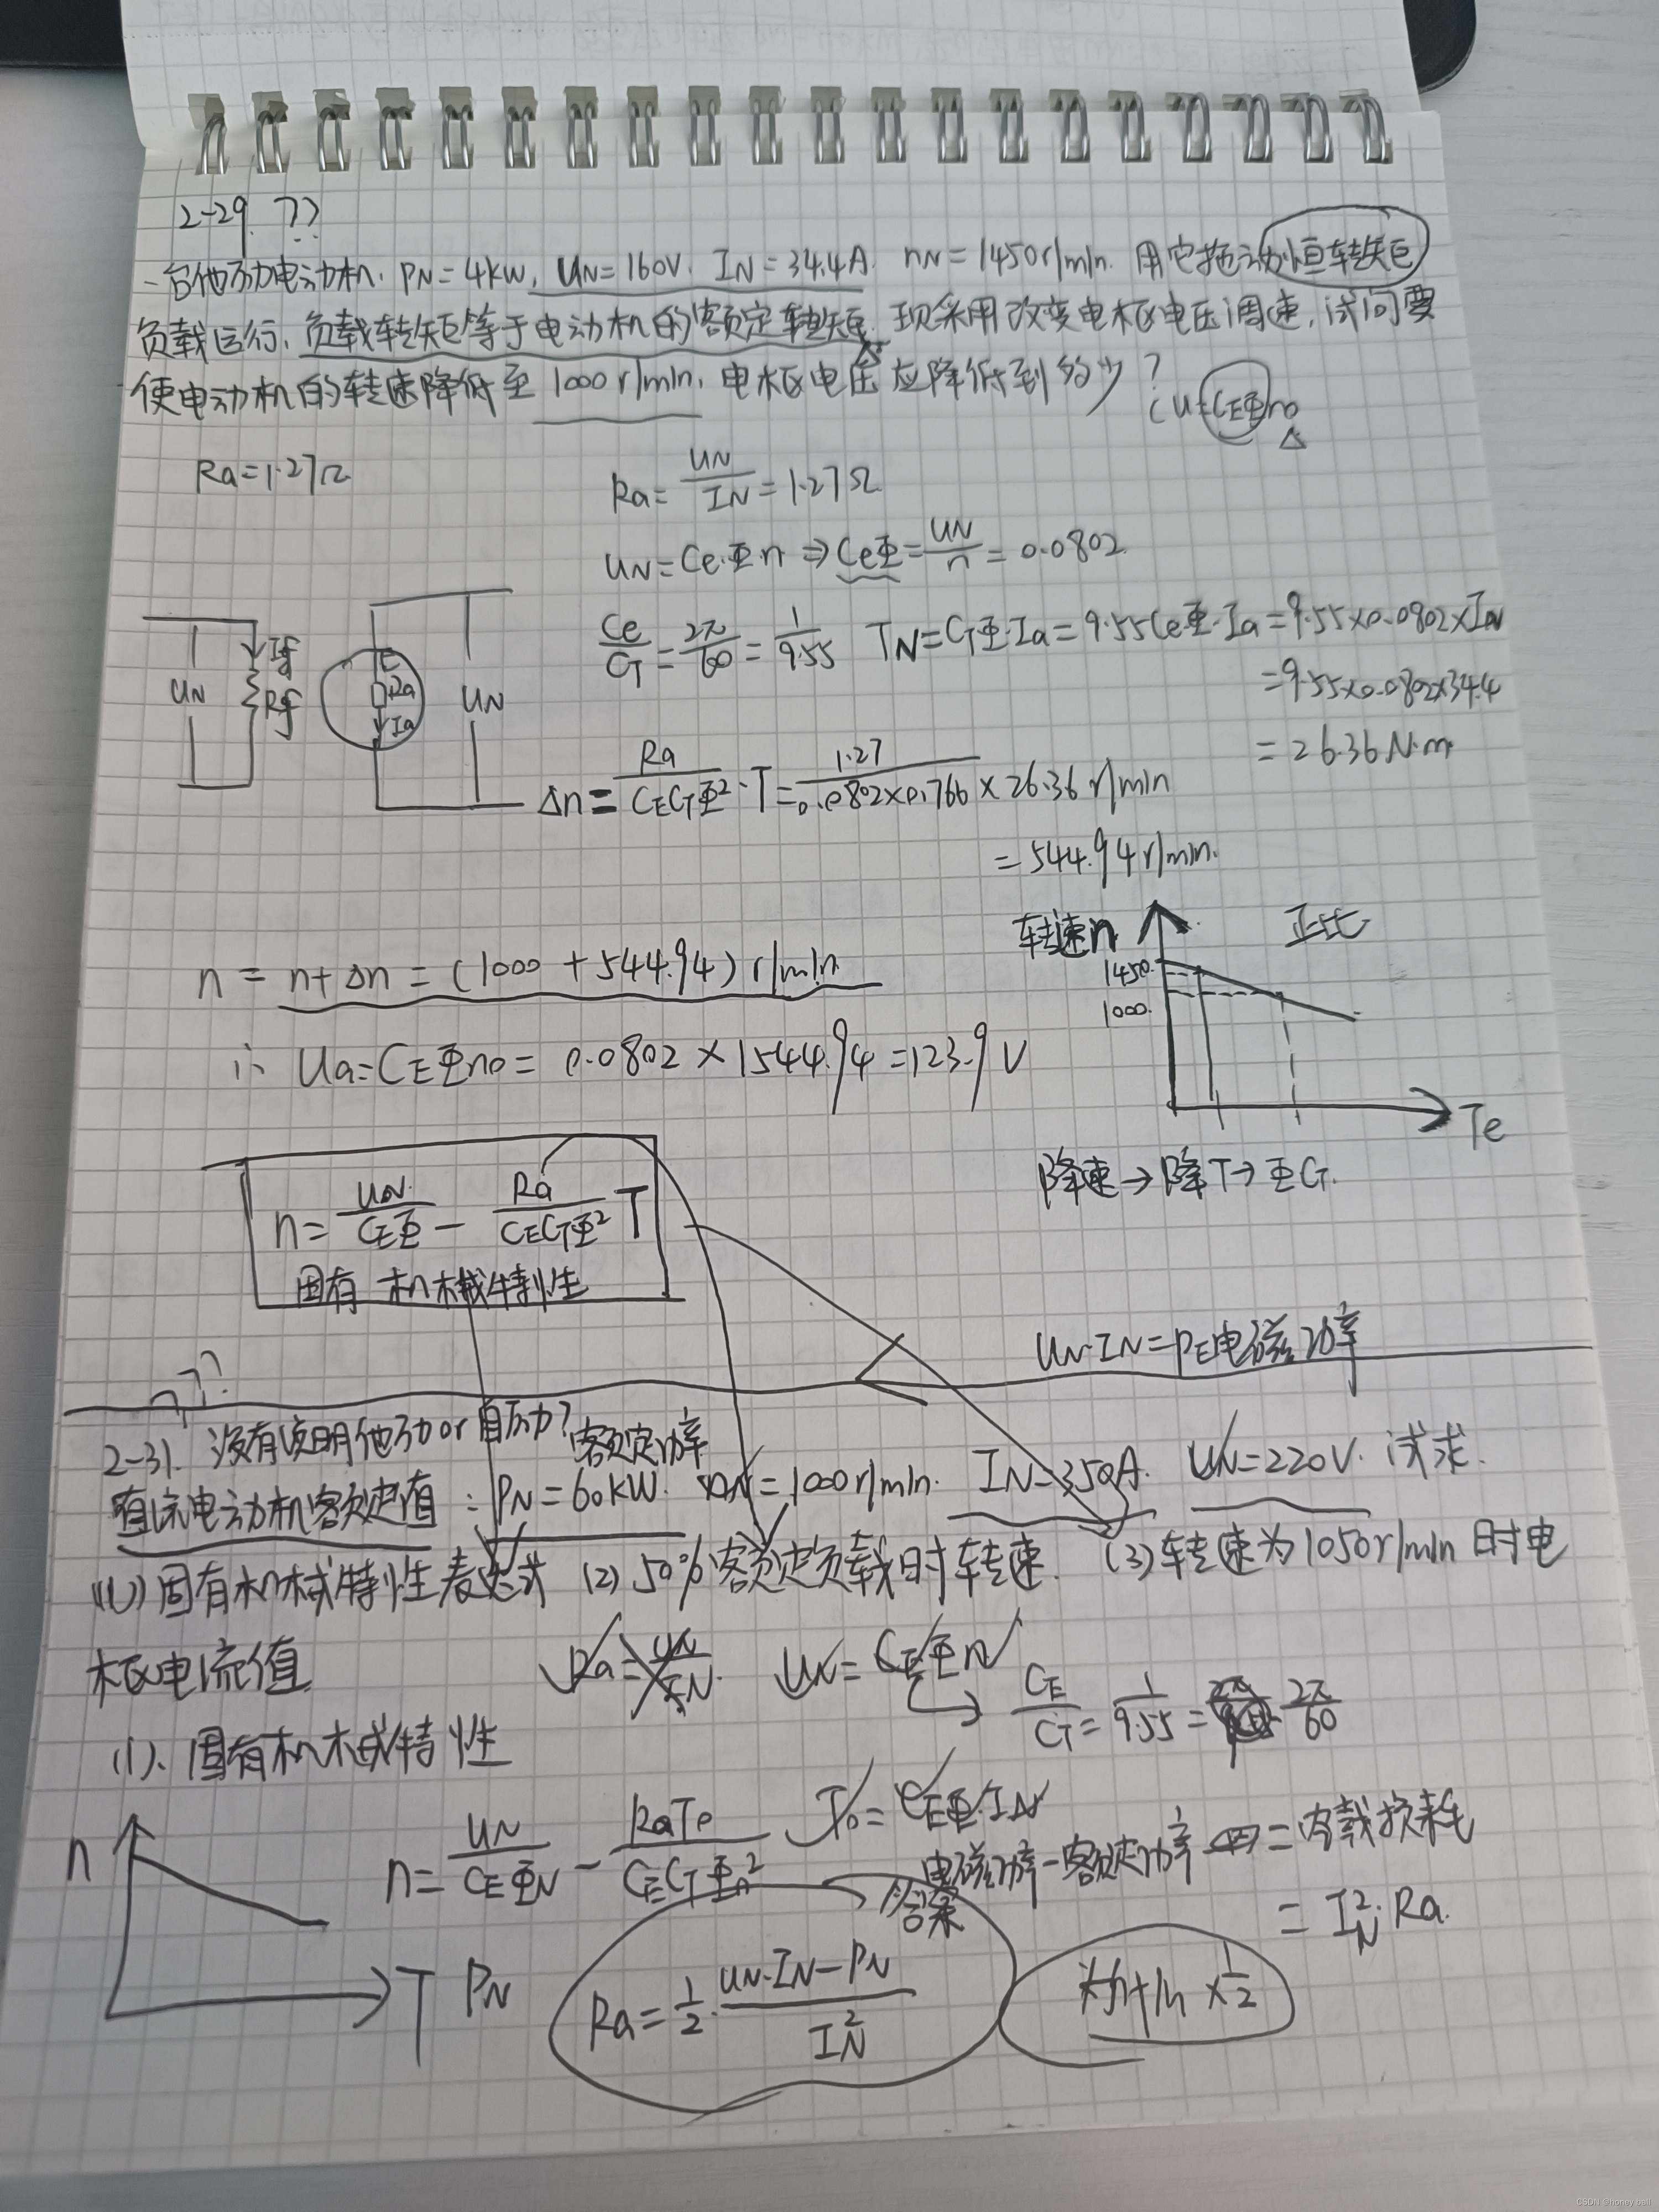 2-29. ??
一台他励电动机. PN=4kW, UN=160V. IN=34.4A. nN=1450r/min. 用它拖动恒转矩
负载运行, 负载转矩等于电动机的额定转矩. 现采用改变电枢电压调速, 试问要
使电动机的转速降低至1000r/min, 电枢电压应降低到多少?
(U=CEΦn0
Ra=1.27Ω
Ra=UN/IN=1.27Ω
UN=Ce·Φ·n ⇒ CeΦ=UN/n=0.0802
Ce/CT=2π/60=1/9.55 TN=CTΦ·Ia=9.55CeΦ·Ia=9.55×0.0802×IN
=9.55×0.0802×34.4
=26.36N·m
UN If Rf E Ra Ia UN
Δn=Ra/CECTΦ²·T=1.27/0.0802×0.766×26.36r/min
=544.94r/min.
n=n+Δn=(1000+544.94)r/min
∴ Ua=CEΦn0=0.0802×1544.94=123.9V
转速n 正比
1450
1000
Te
降速→降T→ΦCT
n=UN/CEΦ-Ra/CECTΦ²T
固有机械特性
UN·IN=PE电磁功率
???
2-31. 没有说明他励or自励?
额定功率
直流电动机额定值:PN=60kW. nN=1000r/min. IN=350A. UN=220V. 试求.
(1)固有机械特性表达式 (2)50%额定负载时转速. (3)转速为1050r/min时电
枢电流值
Ra=UN/IN UN=CEΦn
CE/CT=1/9.55=2π/60
(1). 固有机械特性
n
n=UN/CEΦN-RaTe/CECTΦn²
=CEΦ·IN
电磁功率-额定功率=内载损耗
=IN²·Ra
答案
T PN
Ra=1/2·UN·IN-PN/IN²
×1/2
CSDN @honey ball